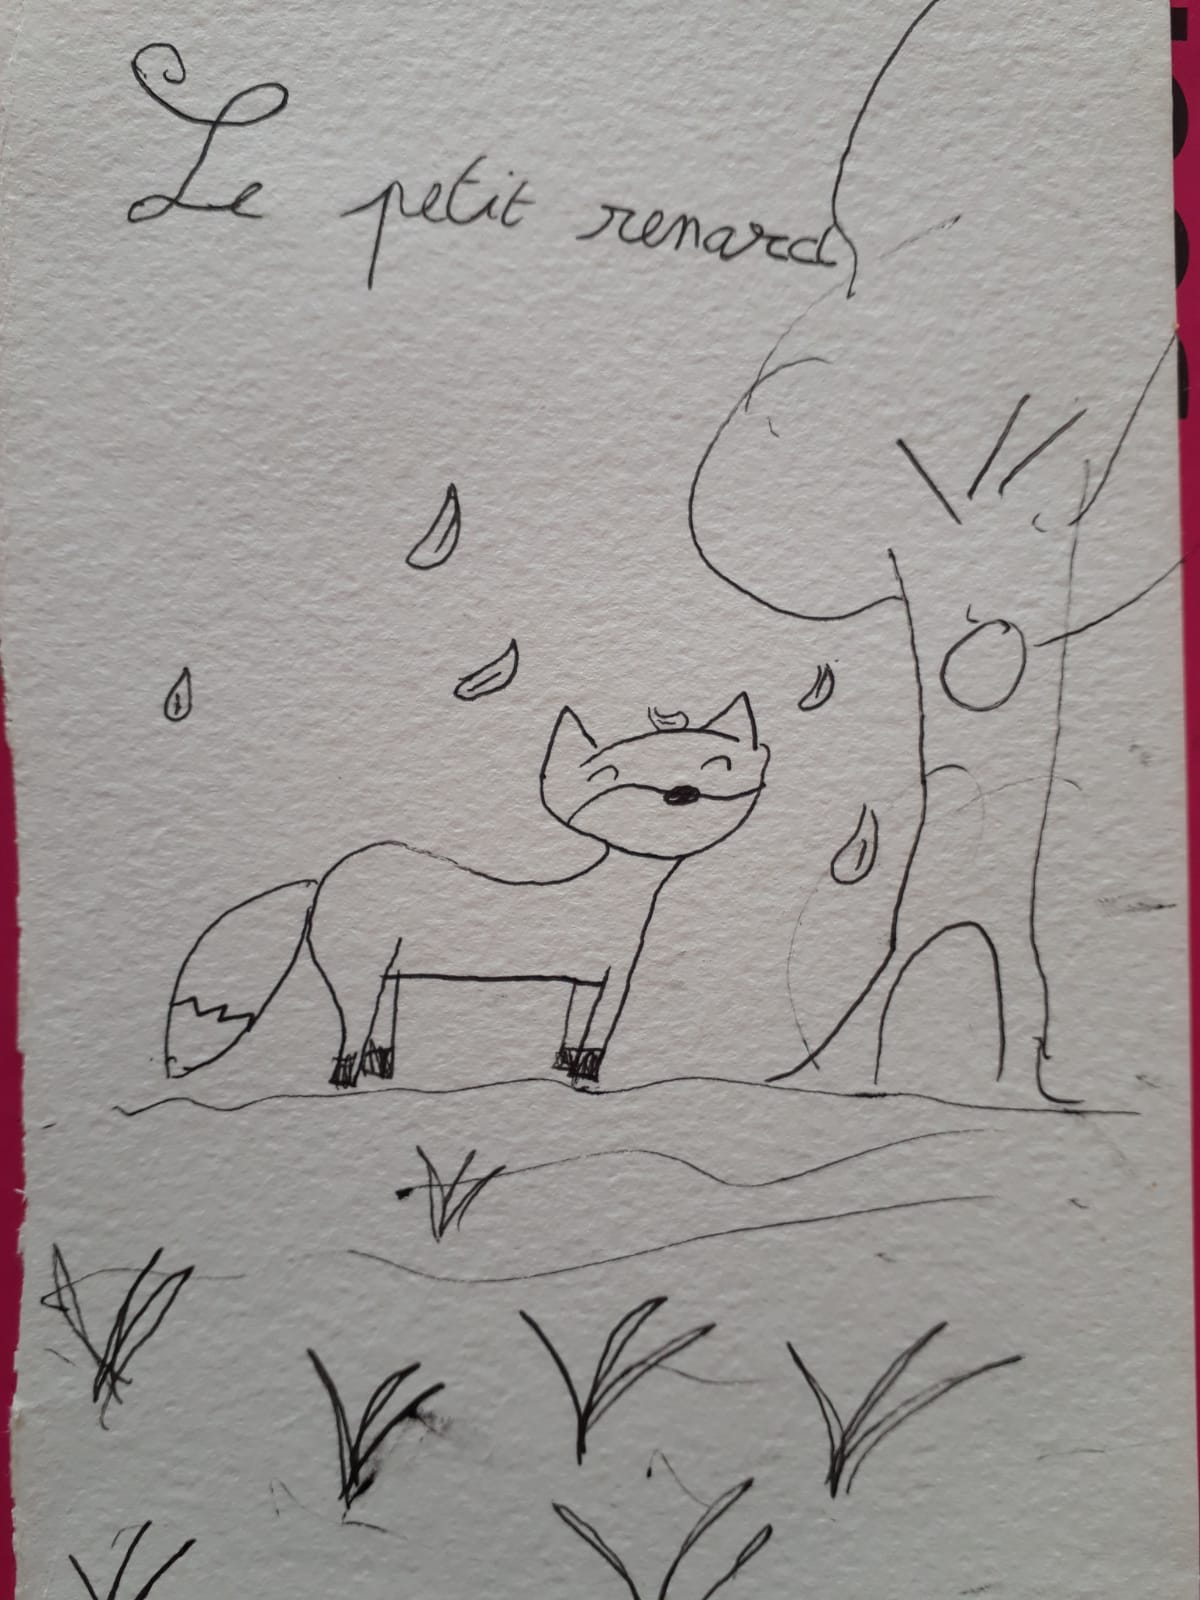 Le petit renard